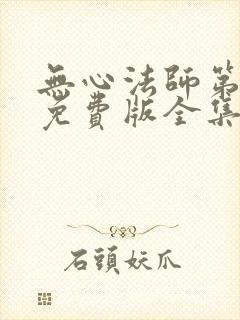 無心法師第
免費版全集
石頭妖爪